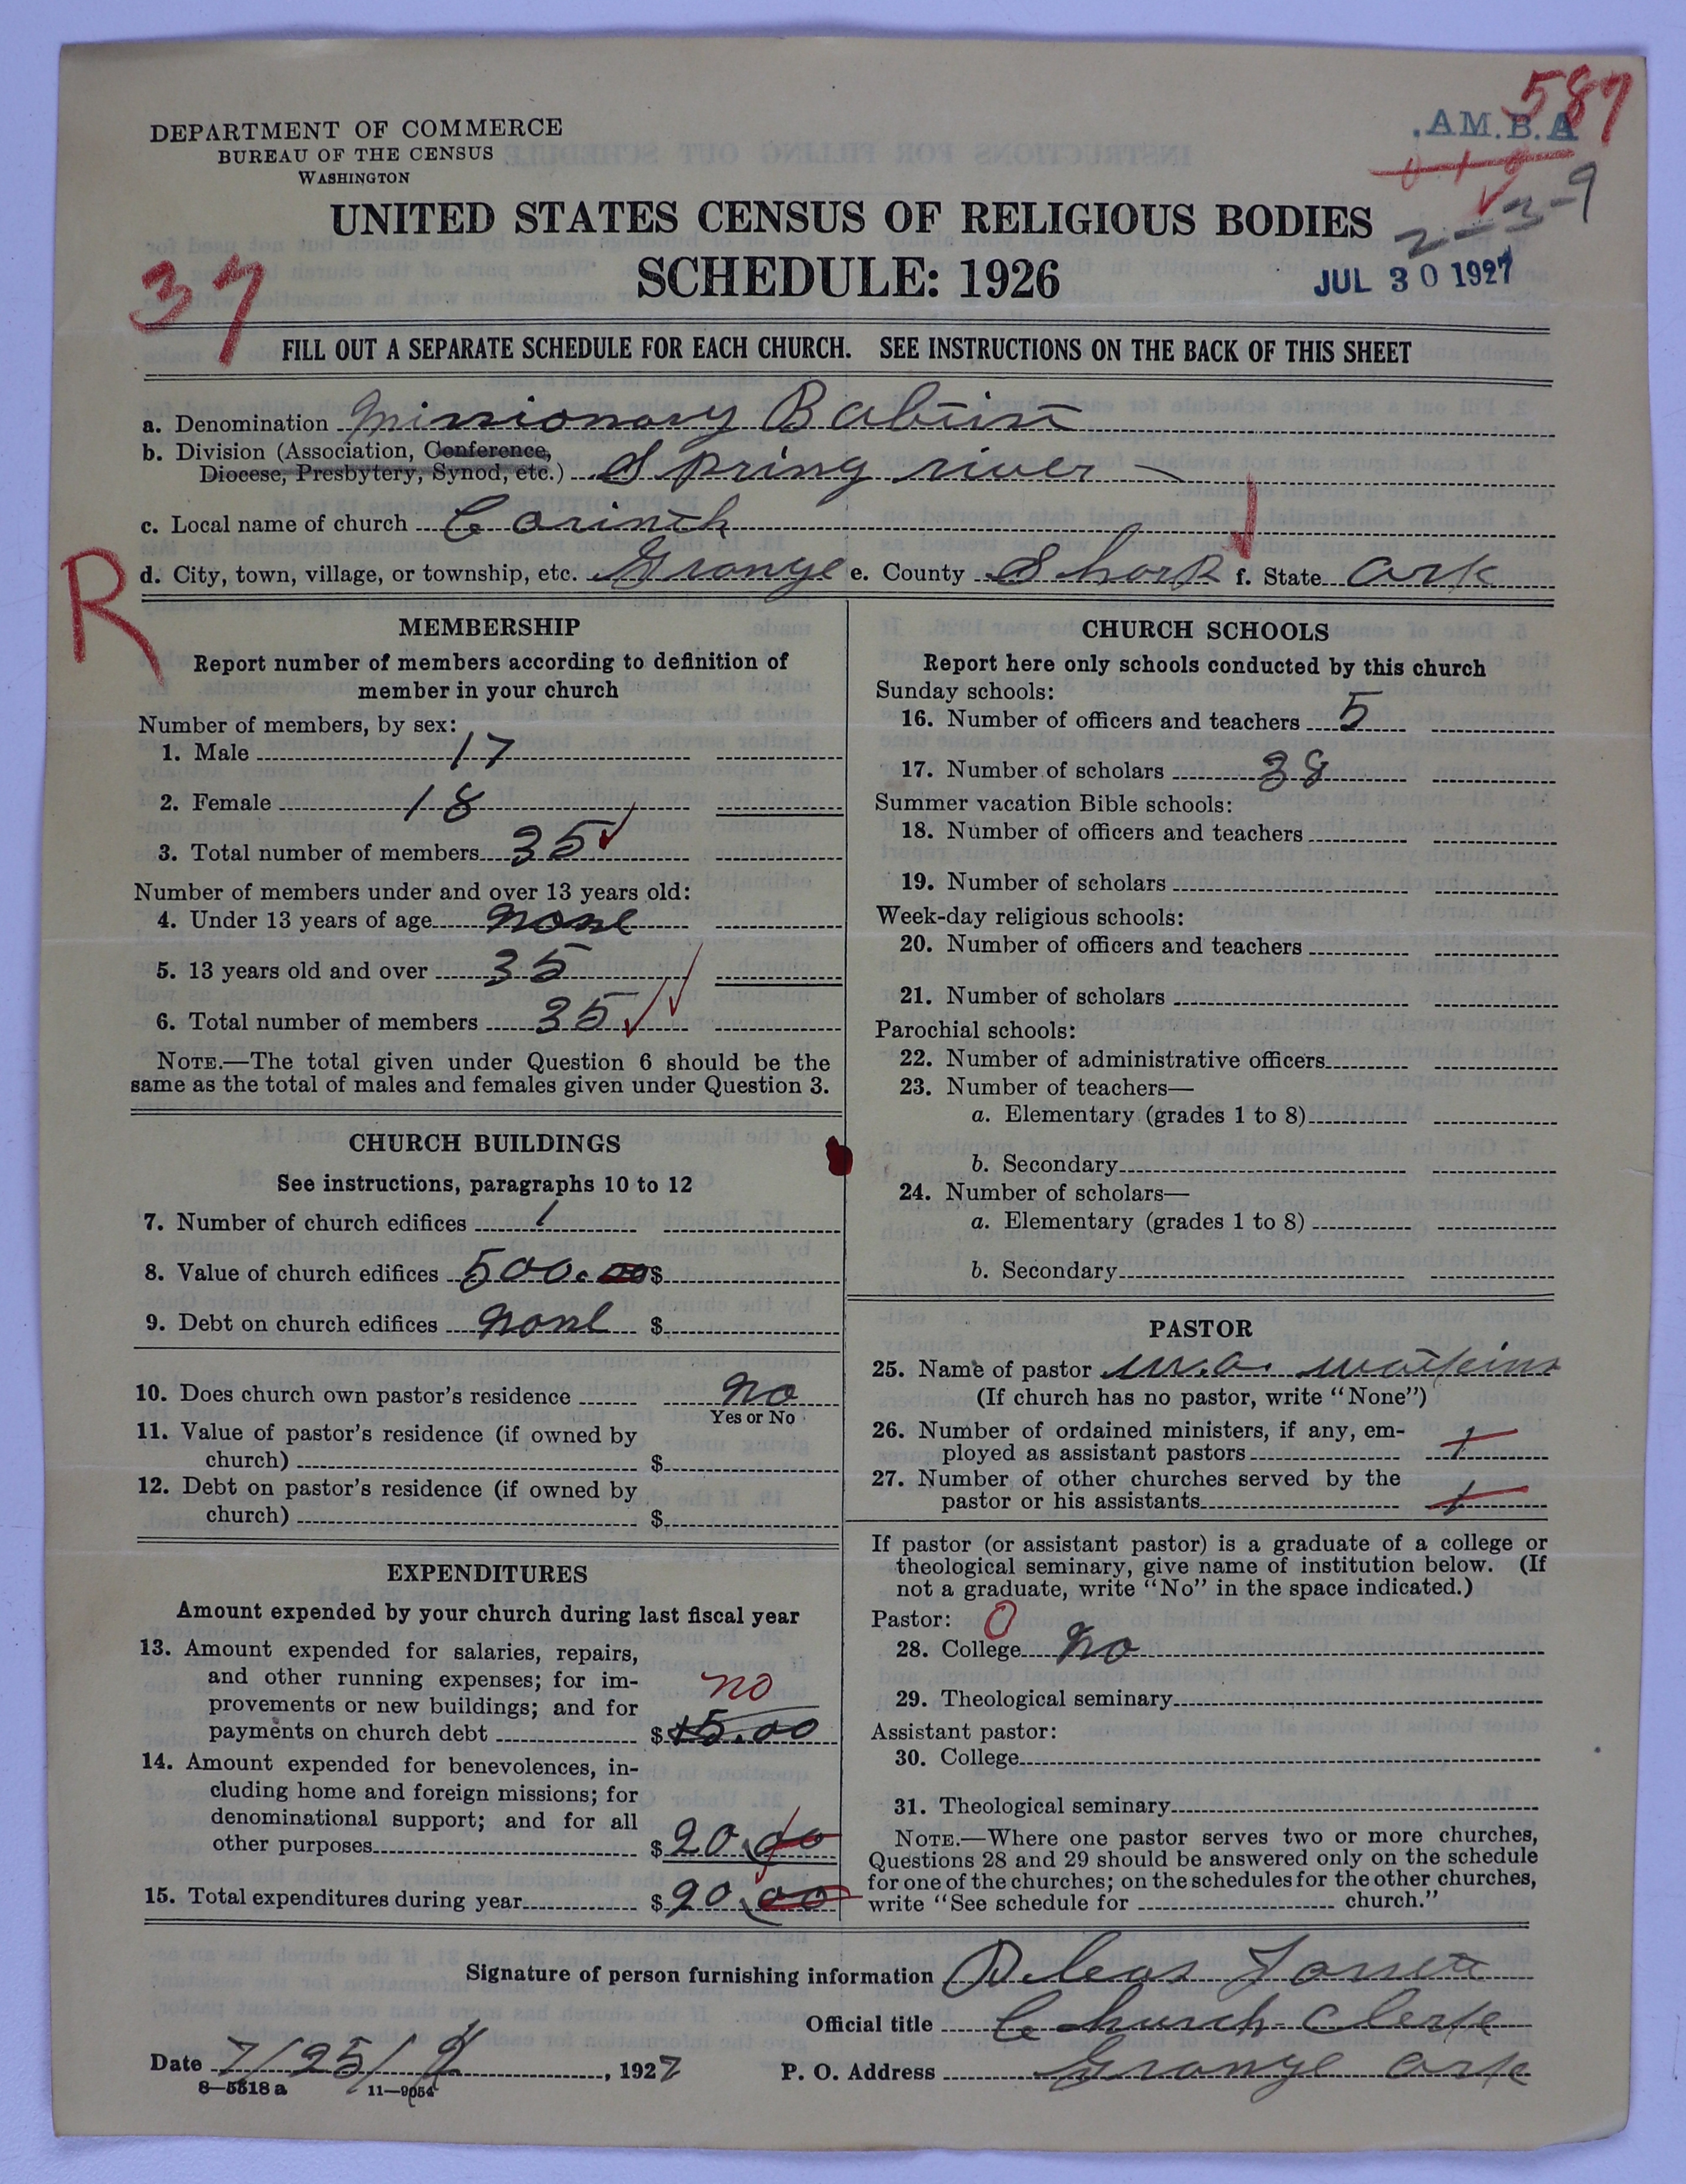 587
DEPARTMENT OF COMMERCE
BUREAU OF THE CENSUS
WASHINGTON
.AM.B.A
2-3-9
UNITED STATES CENSUS OF RELIGIOUS BODIES
SCHEDULE: 1926
JUL 30 1927
37
FILL OUT A SEPARATE SCHEDULE FOR EACH CHURCH. SEE INSTRUCTIONS ON THE BACK OF THIS SHEET
a. Denomination Missionary Babtist
b. Division (Association, Conference,
Diocese, Presbytery, Synod, etc.) Spring river
c. Local name of church Corinth
d. City, town, village, or township, etc. Grange e. County Sharp f. State Ark
R
MEMBERSHIP
Report number of members according to definition of
member in your church
Number of members, by sex:
1. Male 17
2. Female 18
3. Total number of members 35
Number of members under and over 13 years old:
4. Under 13 years of age none
5. 13 years old and over 35
6. Total number of members 35
NOTE.—The total given under Question 6 should be the
same as the total of males and females given under Question 3.
CHURCH BUILDINGS
See instructions, paragraphs 10 to 12
7. Number of church edifices 1
8. Value of church edifices 500.00 $
9. Debt on church edifices none $
10. Does church own pastor's residence no
Yes or No
11. Value of pastor's residence (if owned by
church) $
12. Debt on pastor's residence (if owned by
church) $
EXPENDITURES
Amount expended by your church during last fiscal year
13. Amount expended for salaries, repairs,
and other running expenses; for im-
provements or new buildings; and for
payments on church debt $ no
5.00
14. Amount expended for benevolences, in-
cluding home and foreign missions; for
denominational support; and for all
other purposes $ 20.00
15. Total expenditures during year $ 20.00
CHURCH SCHOOLS
Report here only schools conducted by this church
Sunday schools:
16. Number of officers and teachers 5
17. Number of scholars 38
Summer vacation Bible schools:
18. Number of officers and teachers
19. Number of scholars
Week-day religious schools:
20. Number of officers and teachers
21. Number of scholars
Parochial schools:
22. Number of administrative officers
23. Number of teachers—
a. Elementary (grades 1 to 8)
b. Secondary
24. Number of scholars—
a. Elementary (grades 1 to 8)
b. Secondary
PASTOR
25. Name of pastor W.a. Watkins
(If church has no pastor, write "None")
26. Number of ordained ministers, if any, em-
ployed as assistant pastors 1
27. Number of other churches served by the
pastor or his assistants 1
If pastor (or assistant pastor) is a graduate of a college or
theological seminary, give name of institution below. (If
not a graduate, write "No" in the space indicated.)
Pastor: 0
28. College no
29. Theological seminary
Assistant pastor:
30. College
31. Theological seminary
NOTE.—Where one pastor serves two or more churches,
Questions 28 and 29 should be answered only on the schedule
for one of the churches; on the schedules for the other churches,
write "See schedule for church."
Signature of person furnishing information
Official title Church Clerk
Date 7/25/ , 1927 P. O. Address Grange Ark
8—5318 a 11—9054